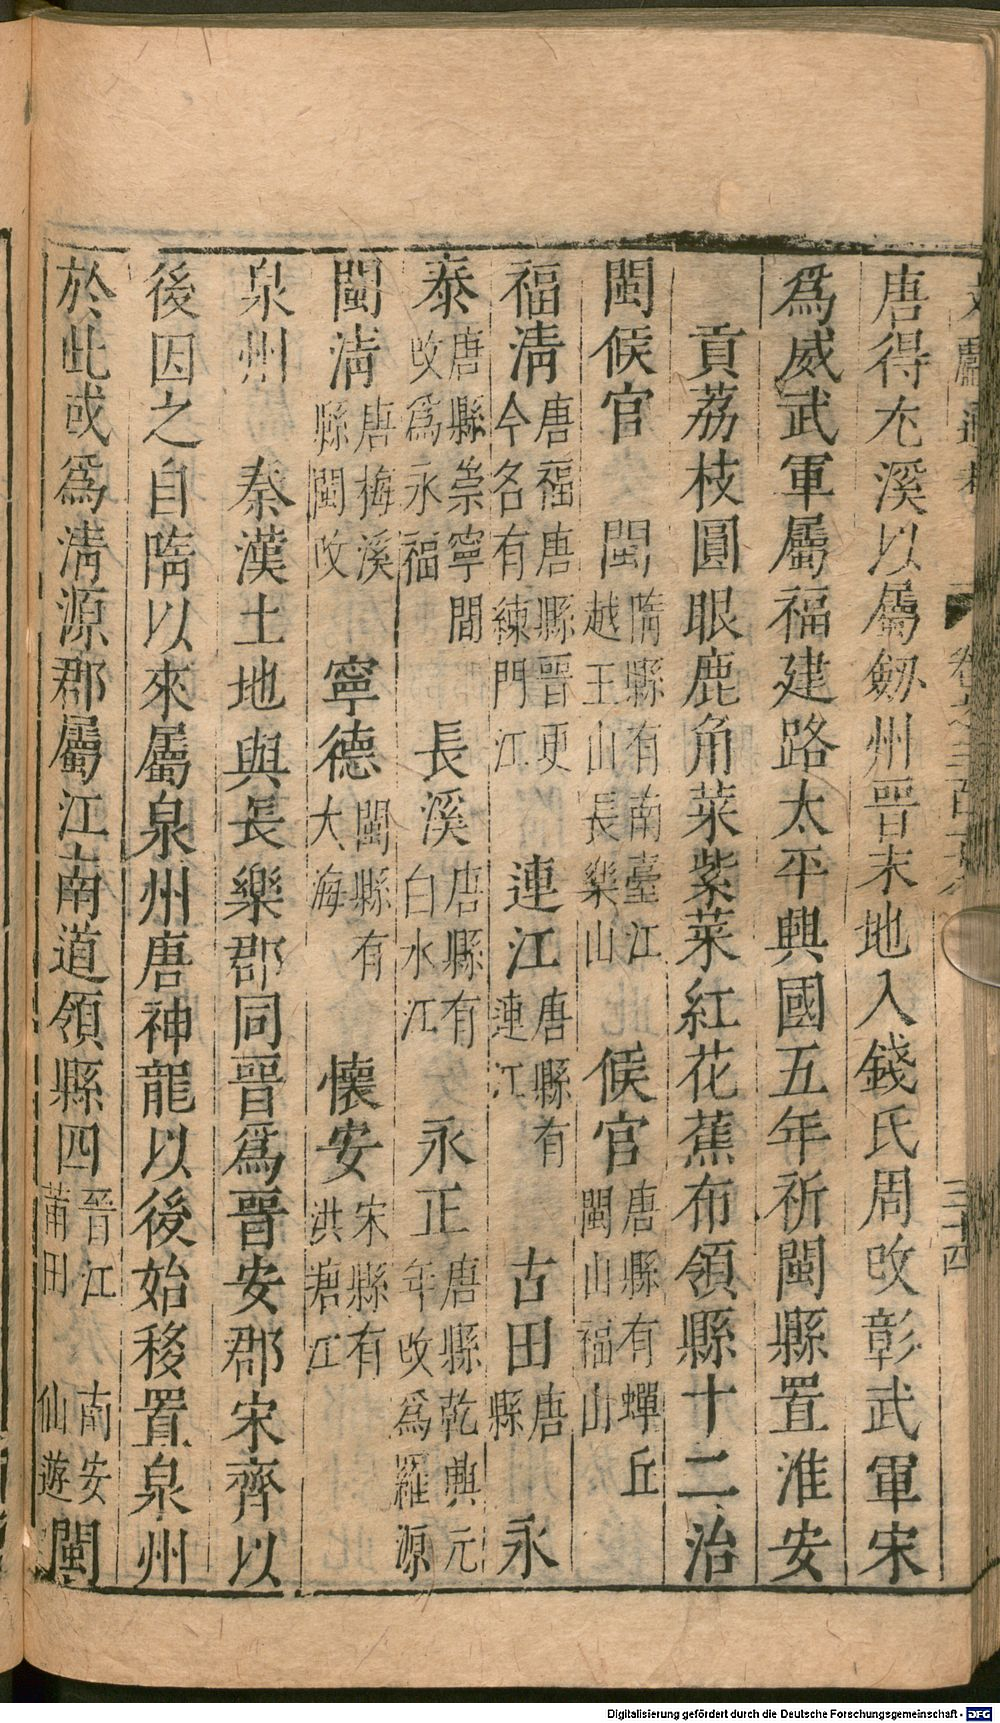 唐得尤溪以屬劔州晉末地入錢氏周攺彰武軍宋
爲威武軍屬福建路太平興國五年祈閩縣置淮安
貢荔枝圓眼鹿角菜紫菜紅花蕉布領縣十二治
閩候官 閩隋縣有南臺江越王山長樂山 候官唐縣有蟬丘閩山福山
福淸唐福唐縣晉更今名有練門江 連江唐縣有連江 古田唐縣 永
泰唐縣崇寧間攺爲永福 長溪唐縣有白水江 永正唐縣乾興元年攺爲羅源
閩淸唐梅溪縣閩攺 寧德閩縣有大海 懷安宋縣有洪塘江
泉州 秦漢土地與長樂郡同晉爲晉安郡宋齊以
後因之自隋以來屬泉州唐神龍以後始移置泉州
於此或爲淸源郡屬江南道領縣四晉江莆田 南安仙遊閩
三十四
Digitalisierung gefördert durch die Deutsche Forschungsgemeinschaft - DFG